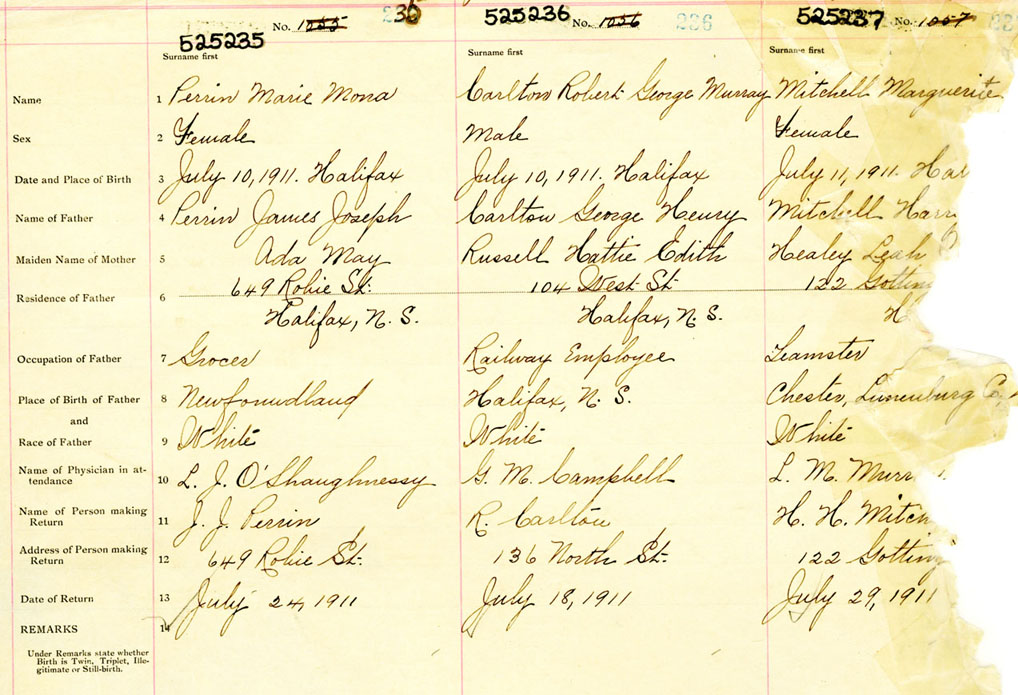 No. 1055 236 525236 No. 1056 236 525237 No. 1057
525235
Surname first Surname first Surname first
Name 1 Perrin Marie Mona Carlton Robert George Murray Mitchell Marguerite
Sex 2 Female Male Female
Date and Place of Birth 3 July 10, 1911. Halifax July 10, 1911. Halifax July 11, 1911. Hal
Name of Father 4 Perrin James Joseph Carlton George Henry Mitchell Harr
Maiden Name of Mother 5 Ada May Russell Hattie Edith Healey Leah
Residence of Father 6 649 Robie St. 104 West St. 122 Gotting
Halifax, N. S. Halifax, N. S. H
Occupation of Father 7 Grocer Railway Employee Teamster
Place of Birth of Father 8 Newfoundland Halifax, N. S. Chester, Lunenburg Co.,
and
Race of Father 9 White White White
Name of Physician in at-
tendance 10 L. J. O'Shaughnessy G. M. Campbell L. M. Murr
Name of Person making
Return 11 J. J. Perrin R. Carlton H. H. Mitch
Address of Person making
Return 12 649 Robie St. 136 North St. 122 Gotting
Date of Return 13 July 24, 1911 July 18, 1911 July 29, 1911
REMARKS 14
Under Remarks state whether
Birth is Twin, Triplet, Ille-
gitimate or Still-birth.